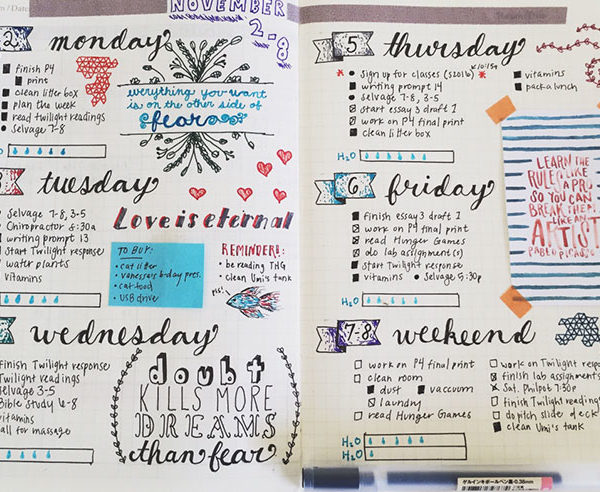 NOVEMBER
2-8
2 monday
finish P4
print
clean litter box
plan the week
read Twilight readings
Selvage 7-8
H2O
everything you want
is on the other side of
fear
tuesday
Selvage 7-8, 3-5
Chiropractor 6:30a
writing prompt 13
start Twilight response
water plants
vitamins
Love is eternal
TO BUY:
cat litter
vanessa's b-day pres.
cat food
USB drive
REMINDER!:
be reading THG
clean Umi's tank
wednesday
finish Twilight response
Twilight readings
Selvage 3-5
Bible Study 6-8
vitamins
call for massage
doubt
KILLS MORE
DREAMS
than fear
5 thursday
sign up for classes (S2016)
writing prompt 14
Selvage 7-8, 3-5
start essay 3 draft 1
work on P4 final print
clean litter box
vitamins
pack a lunch
H2O
6 friday
finish essay 3 draft 1
work on P4 final print
read Hunger Games
do lab assignment(s)
start Twilight response
vitamins
Selvage 5:30p
H2O
LEARN THE
RULES LIKE
A PRO
SO YOU CAN
BREAK THEM
LIKE AN
ARTIST
PABLO PICASSO
7-8 weekend
work on P4 final print
clean room
dust
vacuum
laundry
read Hunger Games
work on Twilight resp
finish lab assignments
Sat. Philpot 7:30p
finish Twilight readings
do pitch slide deck
clean Umi's tank
H2O
H2O
ゲルインキボールペン黒・0.38mm